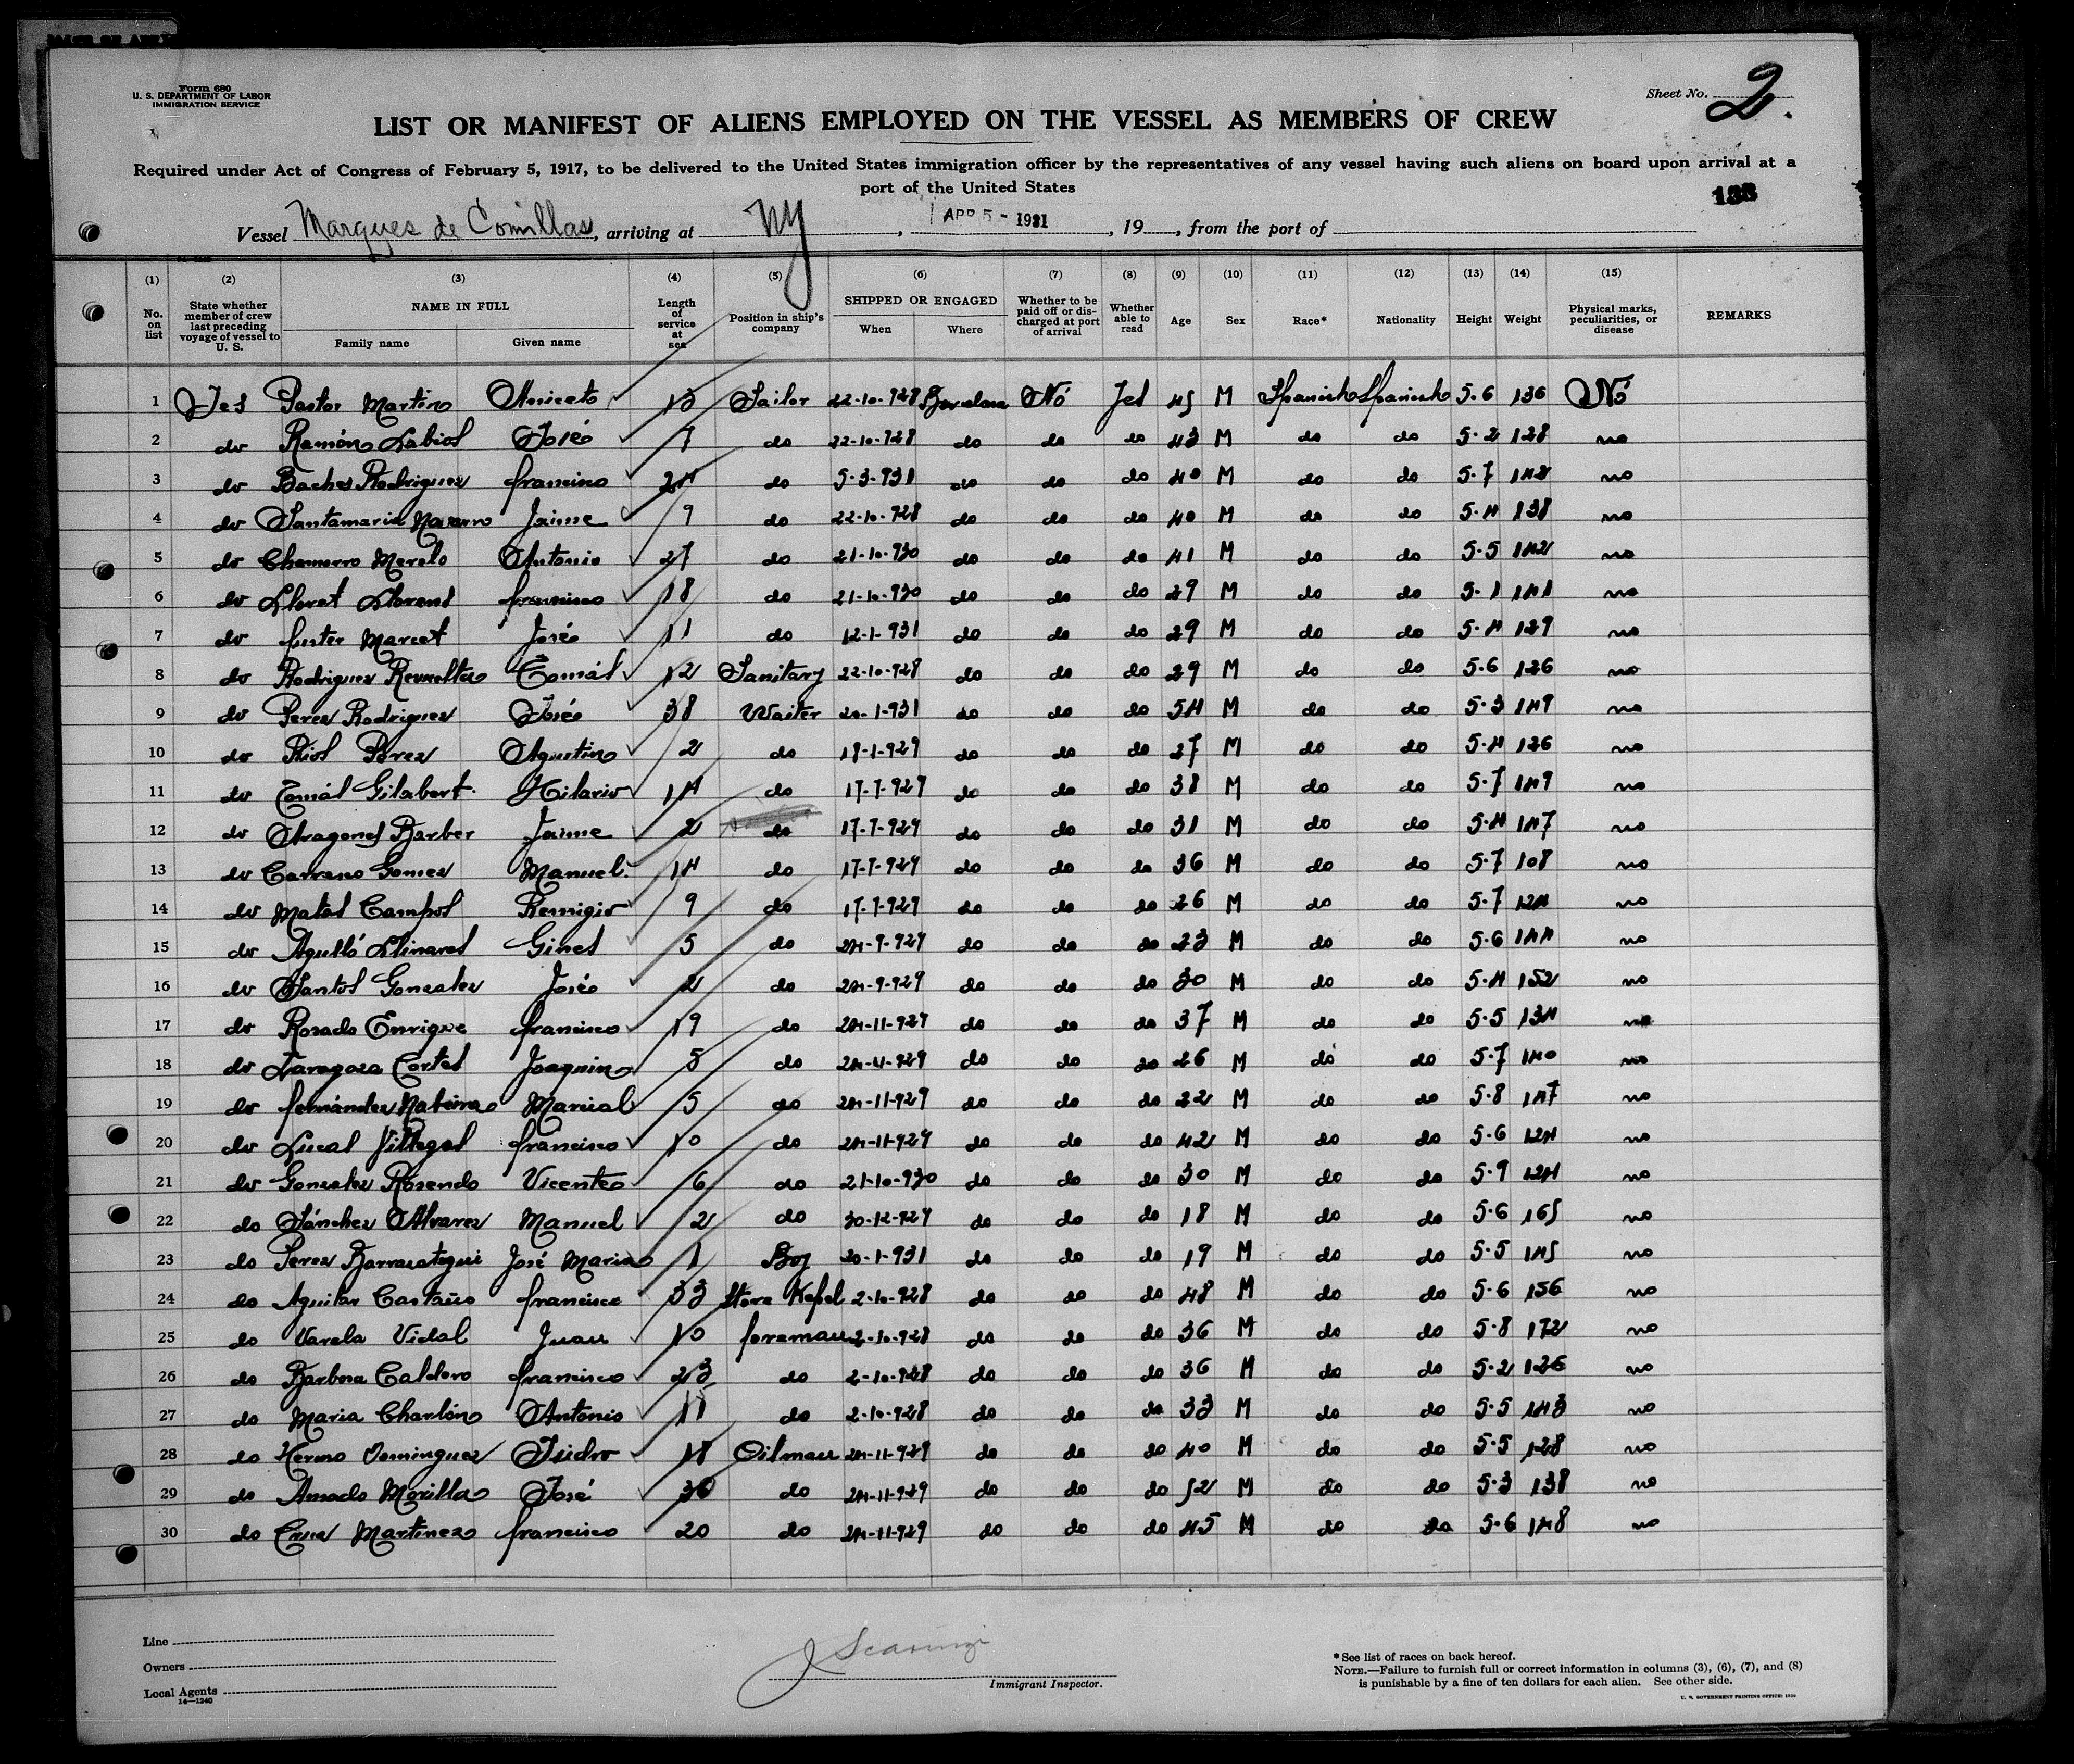 Form 680
U. S. DEPARTMENT OF LABOR
IMMIGRATION SERVICE
Sheet No. 2.
LIST OR MANIFEST OF ALIENS EMPLOYED ON THE VESSEL AS MEMBERS OF CREW
Required under Act of Congress of February 5, 1917, to be delivered to the United States immigration officer by the representatives of any vessel having such aliens on board upon arrival at a
port of the United States
133
Vessel Marques de Comillas, arriving at NY, APR 5 - 1931, 19 , from the port of
(1) (2) (3) (4) (5) (6) (7) (8) (9) (10) (11) (12) (13) (14) (15)
No. on list State whether member of crew last preceding voyage of vessel to U. S. NAME IN FULL Family name Given name Length of service at sea Position in ship's company SHIPPED OR ENGAGED When Where Whether to be paid off or discharged at port of arrival Whether able to read Age Sex Race* Nationality Height Weight Physical marks, peculiarities, or disease REMARKS
1 Yes Pastor Martino Aniceto Sailor 22-10-928 Barcelona No Yes 45 M Spanish Spanish 5.6 136 No
2 do Ramón Labios José 7 do 22-10-928 do do do 43 M do do 5.2 128 no
3 do Baches Rodriguez francisco 24 do 5-3-931 do do do 40 M do do 5.7 142 no
4 do Santamaria Navarro Jaime 9 do 22-10-928 do do do 40 M do do 5.4 138 no
5 do Chamorro Merelo Antonio 27 do 21-10-930 do do do 41 M do do 5.5 142 no
6 do Lloret Llorens francisco 18 do 21-10-930 do do do 29 M do do 5.1 141 no
7 do fuster Marcet José 11 do 12-1-931 do do do 29 M do do 5.4 129 no
8 do Rodriguez Revuelta Tomás 12 Sanitary 22-10-928 do do do 29 M do do 5.6 126 no
9 do Perez Rodriguez José 38 Waiter 20-1-931 do do do 54 M do do 5.3 149 no
10 do Rios Perez Agustino 2 do 19-1-929 do do do 27 M do do 5.4 126 no
11 do Tomás Gilabert Hilario 14 do 17-7-929 do do do 38 M do do 5.7 149 no
12 do Aragones Barber Jaime 2 do 17-7-929 do do do 31 M do do 5.4 147 no
13 do Carrano Gomez Manuel 14 do 17-7-929 do do do 36 M do do 5.7 108 no
14 do Matas Campos Remigio 9 do 17-7-929 do do do 26 M do do 5.7 124 no
15 do Agulló Llinares Gines 5 do 24-9-929 do do do 23 M do do 5.6 144 no
16 do Santos Gonzalez José 2 do 24-9-929 do do do 30 M do do 5.4 152 no
17 do Rosado Enrique francisco 19 do 24-11-929 do do do 37 M do do 5.5 134 no
18 do Zaragoza Cortes Joaquin 5 do 24-11-929 do do do 26 M do do 5.7 140 no
19 do fernández Marcial 5 do 24-11-929 do do do 22 M do do 5.8 147 no
20 do Lucas Villegas francisco 10 do 24-11-929 do do do 42 M do do 5.6 124 no
21 do Gonzalez Rosendo Vicente 6 do 21-10-930 do do do 30 M do do 5.9 124 no
22 do Sánchez Alvarez Manuel 2 do 30-12-929 do do do 18 M do do 5.6 165 no
23 do Perez José Maria 1 Boy 20-1-931 do do do 19 M do do 5.5 145 no
24 do Aguilar Castaño francisco 33 Store 2-10-928 do do do 48 M do do 5.6 156 no
25 do Varela Vidal Juan 10 foreman 2-10-928 do do do 36 M do do 5.8 172 no
26 do Barbosa Caldero francisco 23 do 2-10-928 do do do 36 M do do 5.2 126 no
27 do Maria Charlón Antonio 11 do 2-10-928 do do do 33 M do do 5.5 143 no
28 do Hermo Dominguez Isidro 18 Oilman 24-11-929 do do do 40 M do do 5.5 128 no
29 do Amado Morilla José 36 do 24-11-929 do do do 52 M do do 5.3 138 no
30 do Cruz Martinez francisco 20 do 24-11-929 do do do 45 M do do 5.6 148 no
Line
Owners
Local Agents
14—1240
Immigrant Inspector.
*See list of races on back hereof.
NOTE.—Failure to furnish full or correct information in columns (3), (6), (7), and (8)
is punishable by a fine of ten dollars for each alien. See other side.